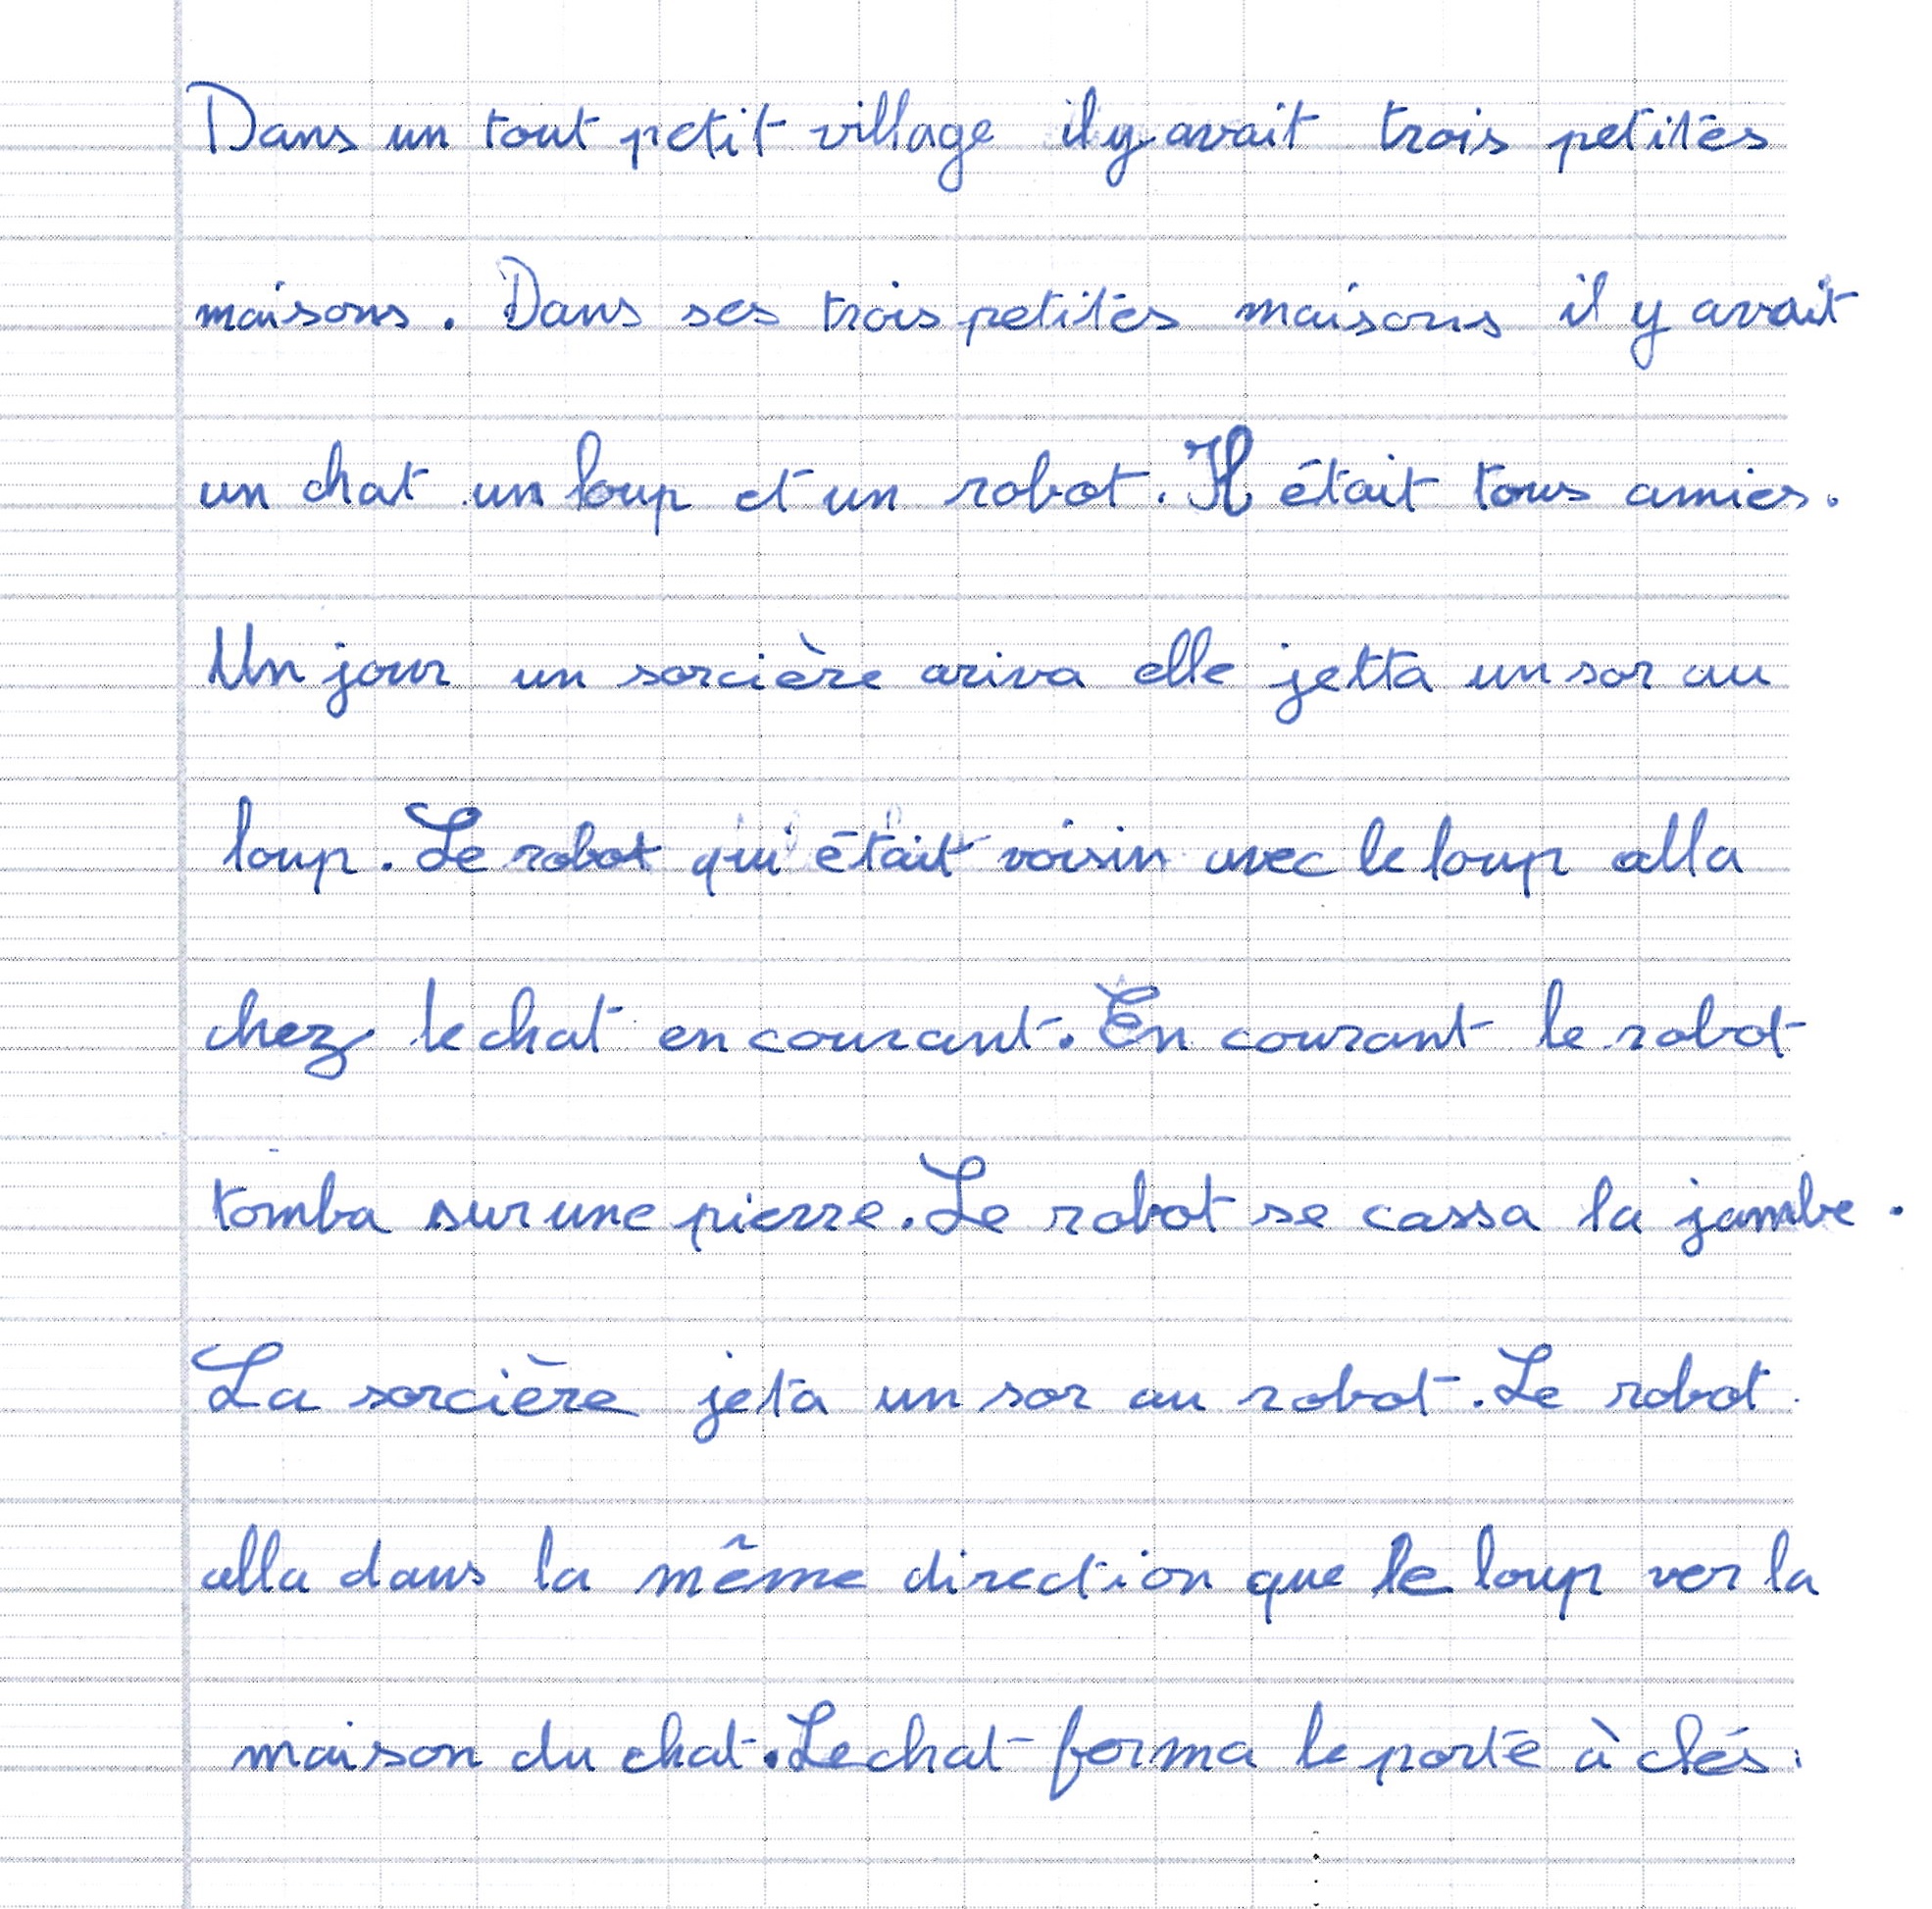 Dans un tout petit village il y avait trois petites
maisons. Dans ses trois petites maisons il y avait
un chat un loup et un robot. Il était tous amies.
Un jour un sorcière ariva elle jetta un sor au
loup. Le robot qui était voisin avec le loup alla
chez le chat en courant. En courant le robot
tomba sur une pierre. Le robot se cassa la jambe.
La sorcière jeta un sor au robot. Le robot
alla dans la même direction que le loup ver la
maison du chat. Le chat ferma le porte à clés.